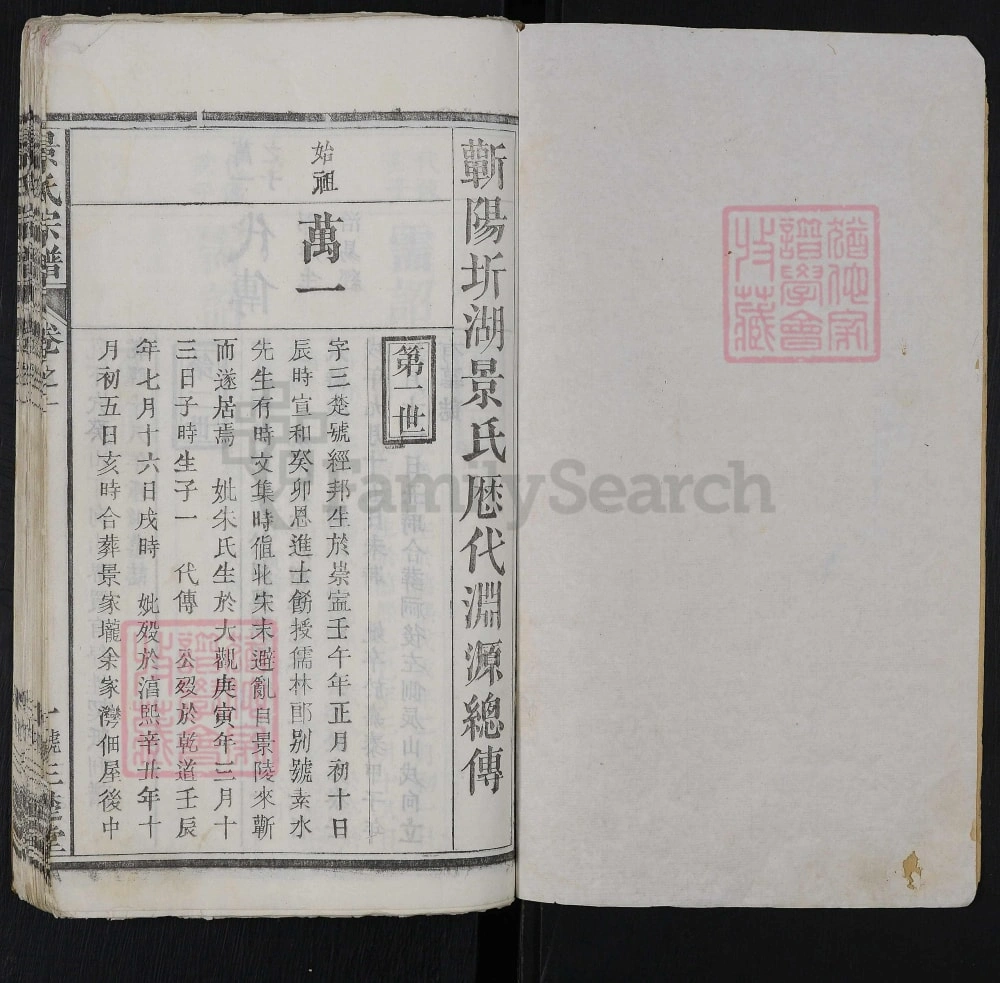 蘄陽圻湖景氏歴代淵源總傳
第一世
始祖
萬一
字三楚號經邦生於崇寍壬午年正月初十日
辰時宣和癸卯恩進士勅授儒林郎别號素水
先生有時文集時值北宋末避亂自景陵來蘄
而遂居焉 妣朱氏生於大觀庚寅年三月十
三日子時生子一 代傳 公殁於乾道壬辰
年七月十六日戌時 妣殁於淳熙辛丑年十
月初五日亥時合葬景家壠余家灣佃屋後中
景氏宗譜
卷之一
一號三楚堂
譜學會
收藏
FamilySearch